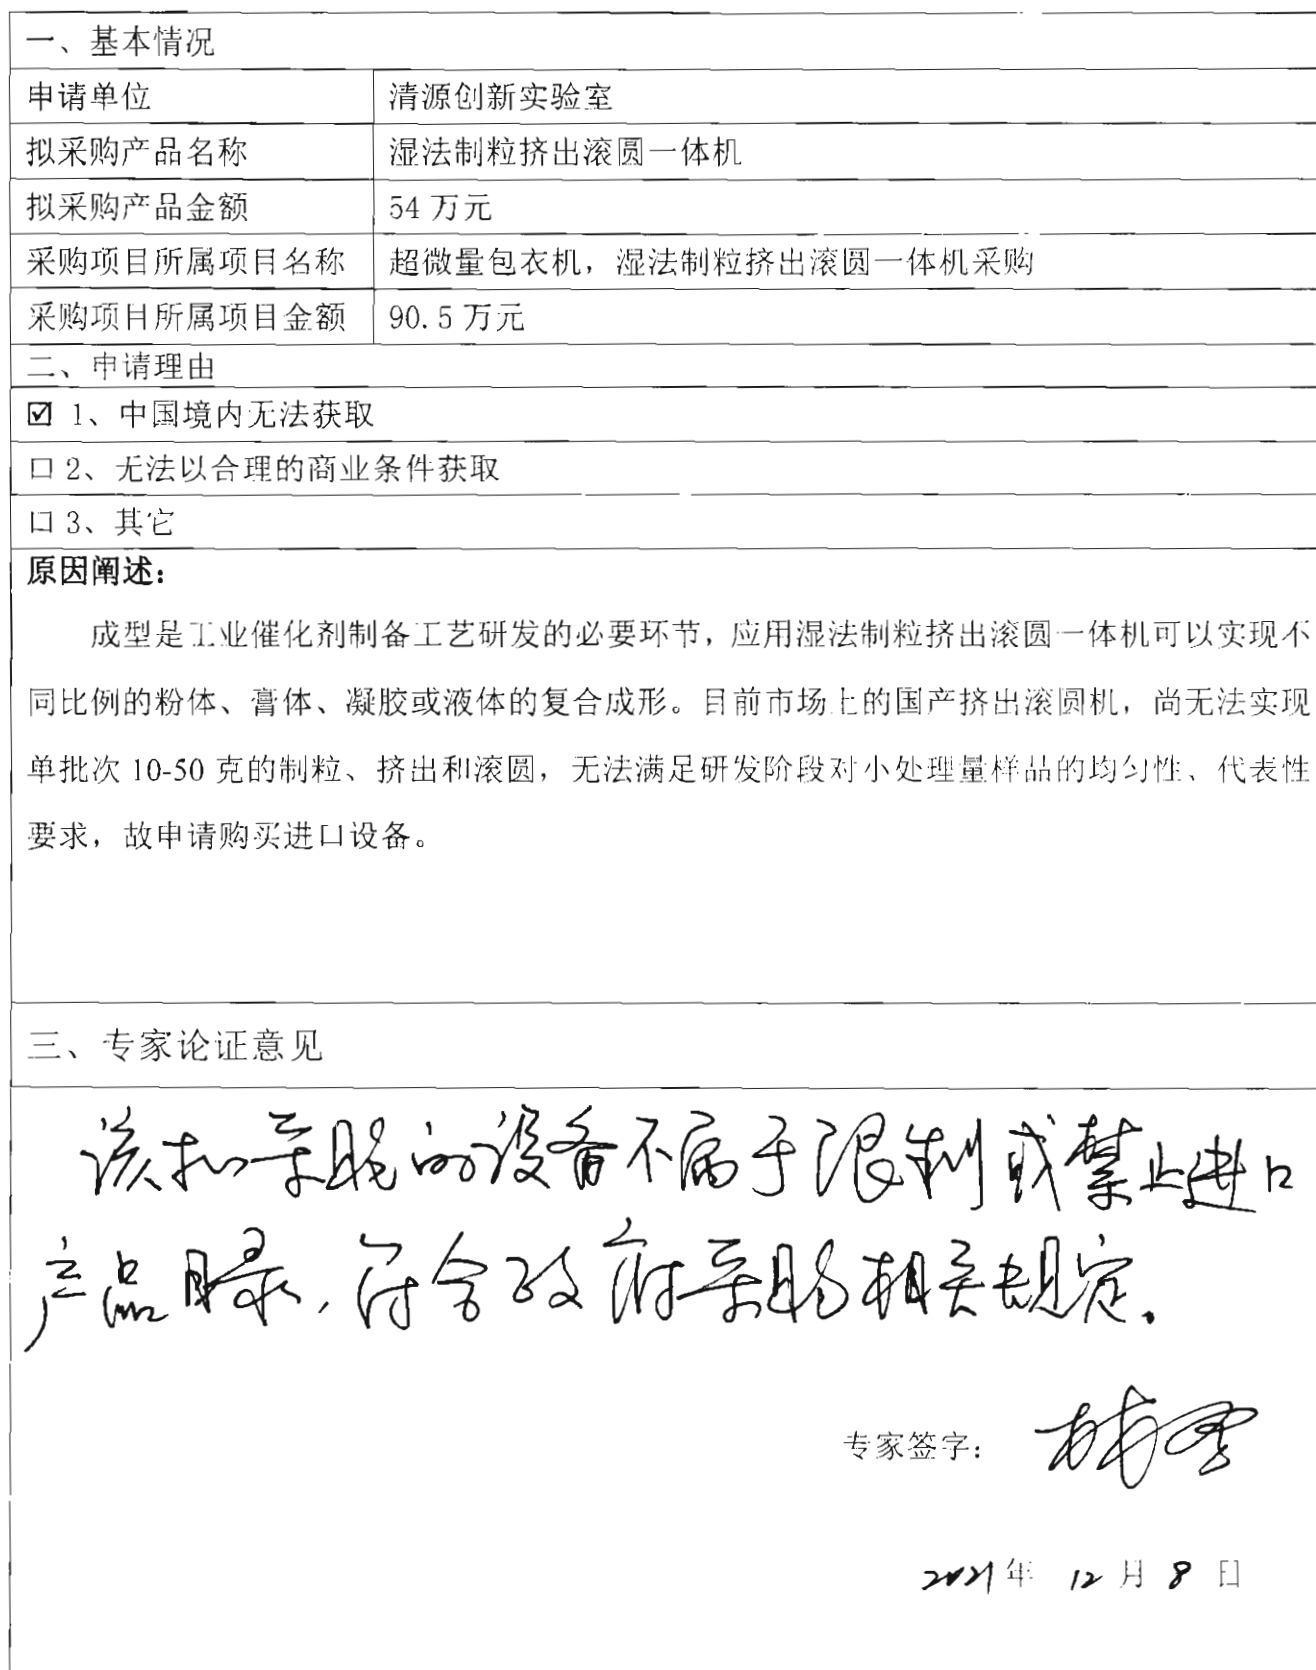 一、基本情况
申请单位 清源创新实验室
拟采购产品名称 湿法制粒挤出滚圆一体机
拟采购产品金额 54 万元
采购项目所属项目名称 超微量包衣机，湿法制粒挤出滚圆一体机采购
采购项目所属项目金额 90.5 万元
二、申请理由
☑ 1、中国境内无法获取
口 2、无法以合理的商业条件获取
口 3、其它
原因阐述：
成型是工业催化剂制备工艺研发的必要环节，应用湿法制粒挤出滚圆一体机可以实现不
同比例的粉体、膏体、凝胶或液体的复合成形。目前市场上的国产挤出滚圆机，尚无法实现
单批次 10-50 克的制粒、挤出和滚圆，无法满足研发阶段对小处理量样品的均匀性、代表性
要求，故申请购买进口设备。
三、专家论证意见
该拟采购的设备不属于限制或禁止进口
产品目录，符合政府采购相关规定.
专家签字：
2021年 12 月 8 日